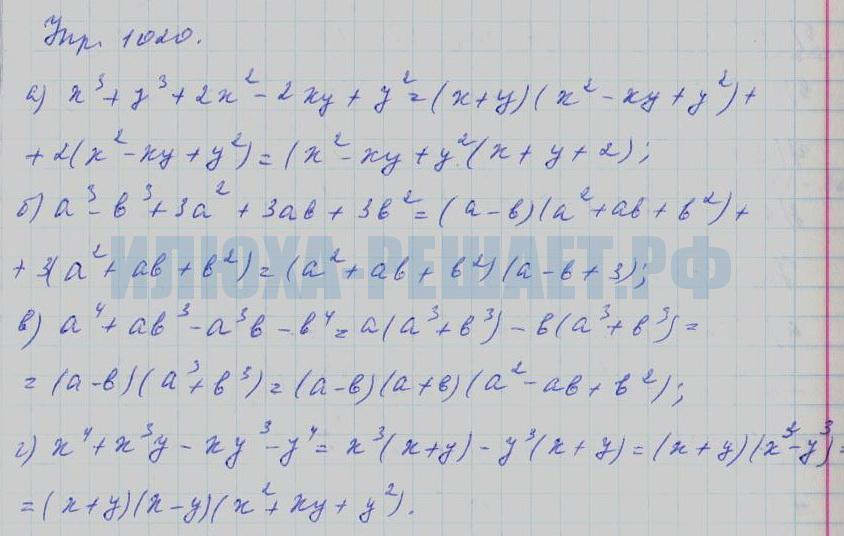 Упр. 1020.
а) x³ + y³ + 2x² - 2xy + y² = (x+y)(x² - xy + y²) +
+ 2(x² - xy + y²) = (x² - xy + y²(x + y + 2);
б) a³ - в³ + 3a² + 3aв + 3в² = (a - в)(a² + aв + в²) +
+ 3(a² + aв + в²) = (a² + aв + в²)(a - в + 3);
ИЛЮХА-РЕШАЕТ.РФ
в) a⁴ + aв³ - a³в - в⁴ = a(a³ + в³) - в(a³ + в³) =
= (a - в)(a³ + в³) = (a - в)(a + в)(a² - aв + в²);
г) x⁴ + x³y - xy³ - y⁴ = x³(x+y) - y³(x+y) = (x+y)(x³ - y³) =
= (x+y)(x-y)(x² + xy + y²).